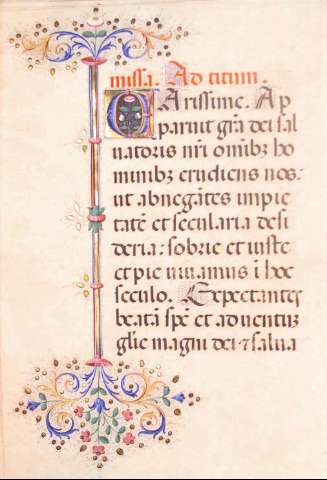 missa. Ad titum.
CArissime. Ap
paruit gr̃a dei sal
uatoris nr̃i om̃ibꝫ ho
minibꝫ erudiens nos:
ut abnegãtes impie
tatẽ et secularia desi
deria: sobrie et iuste
et pie uiuamus ĩ hoc
seculo. Expectantes
beatã spẽ et aduentũ
gl̃ie magni dei ⁊ salua